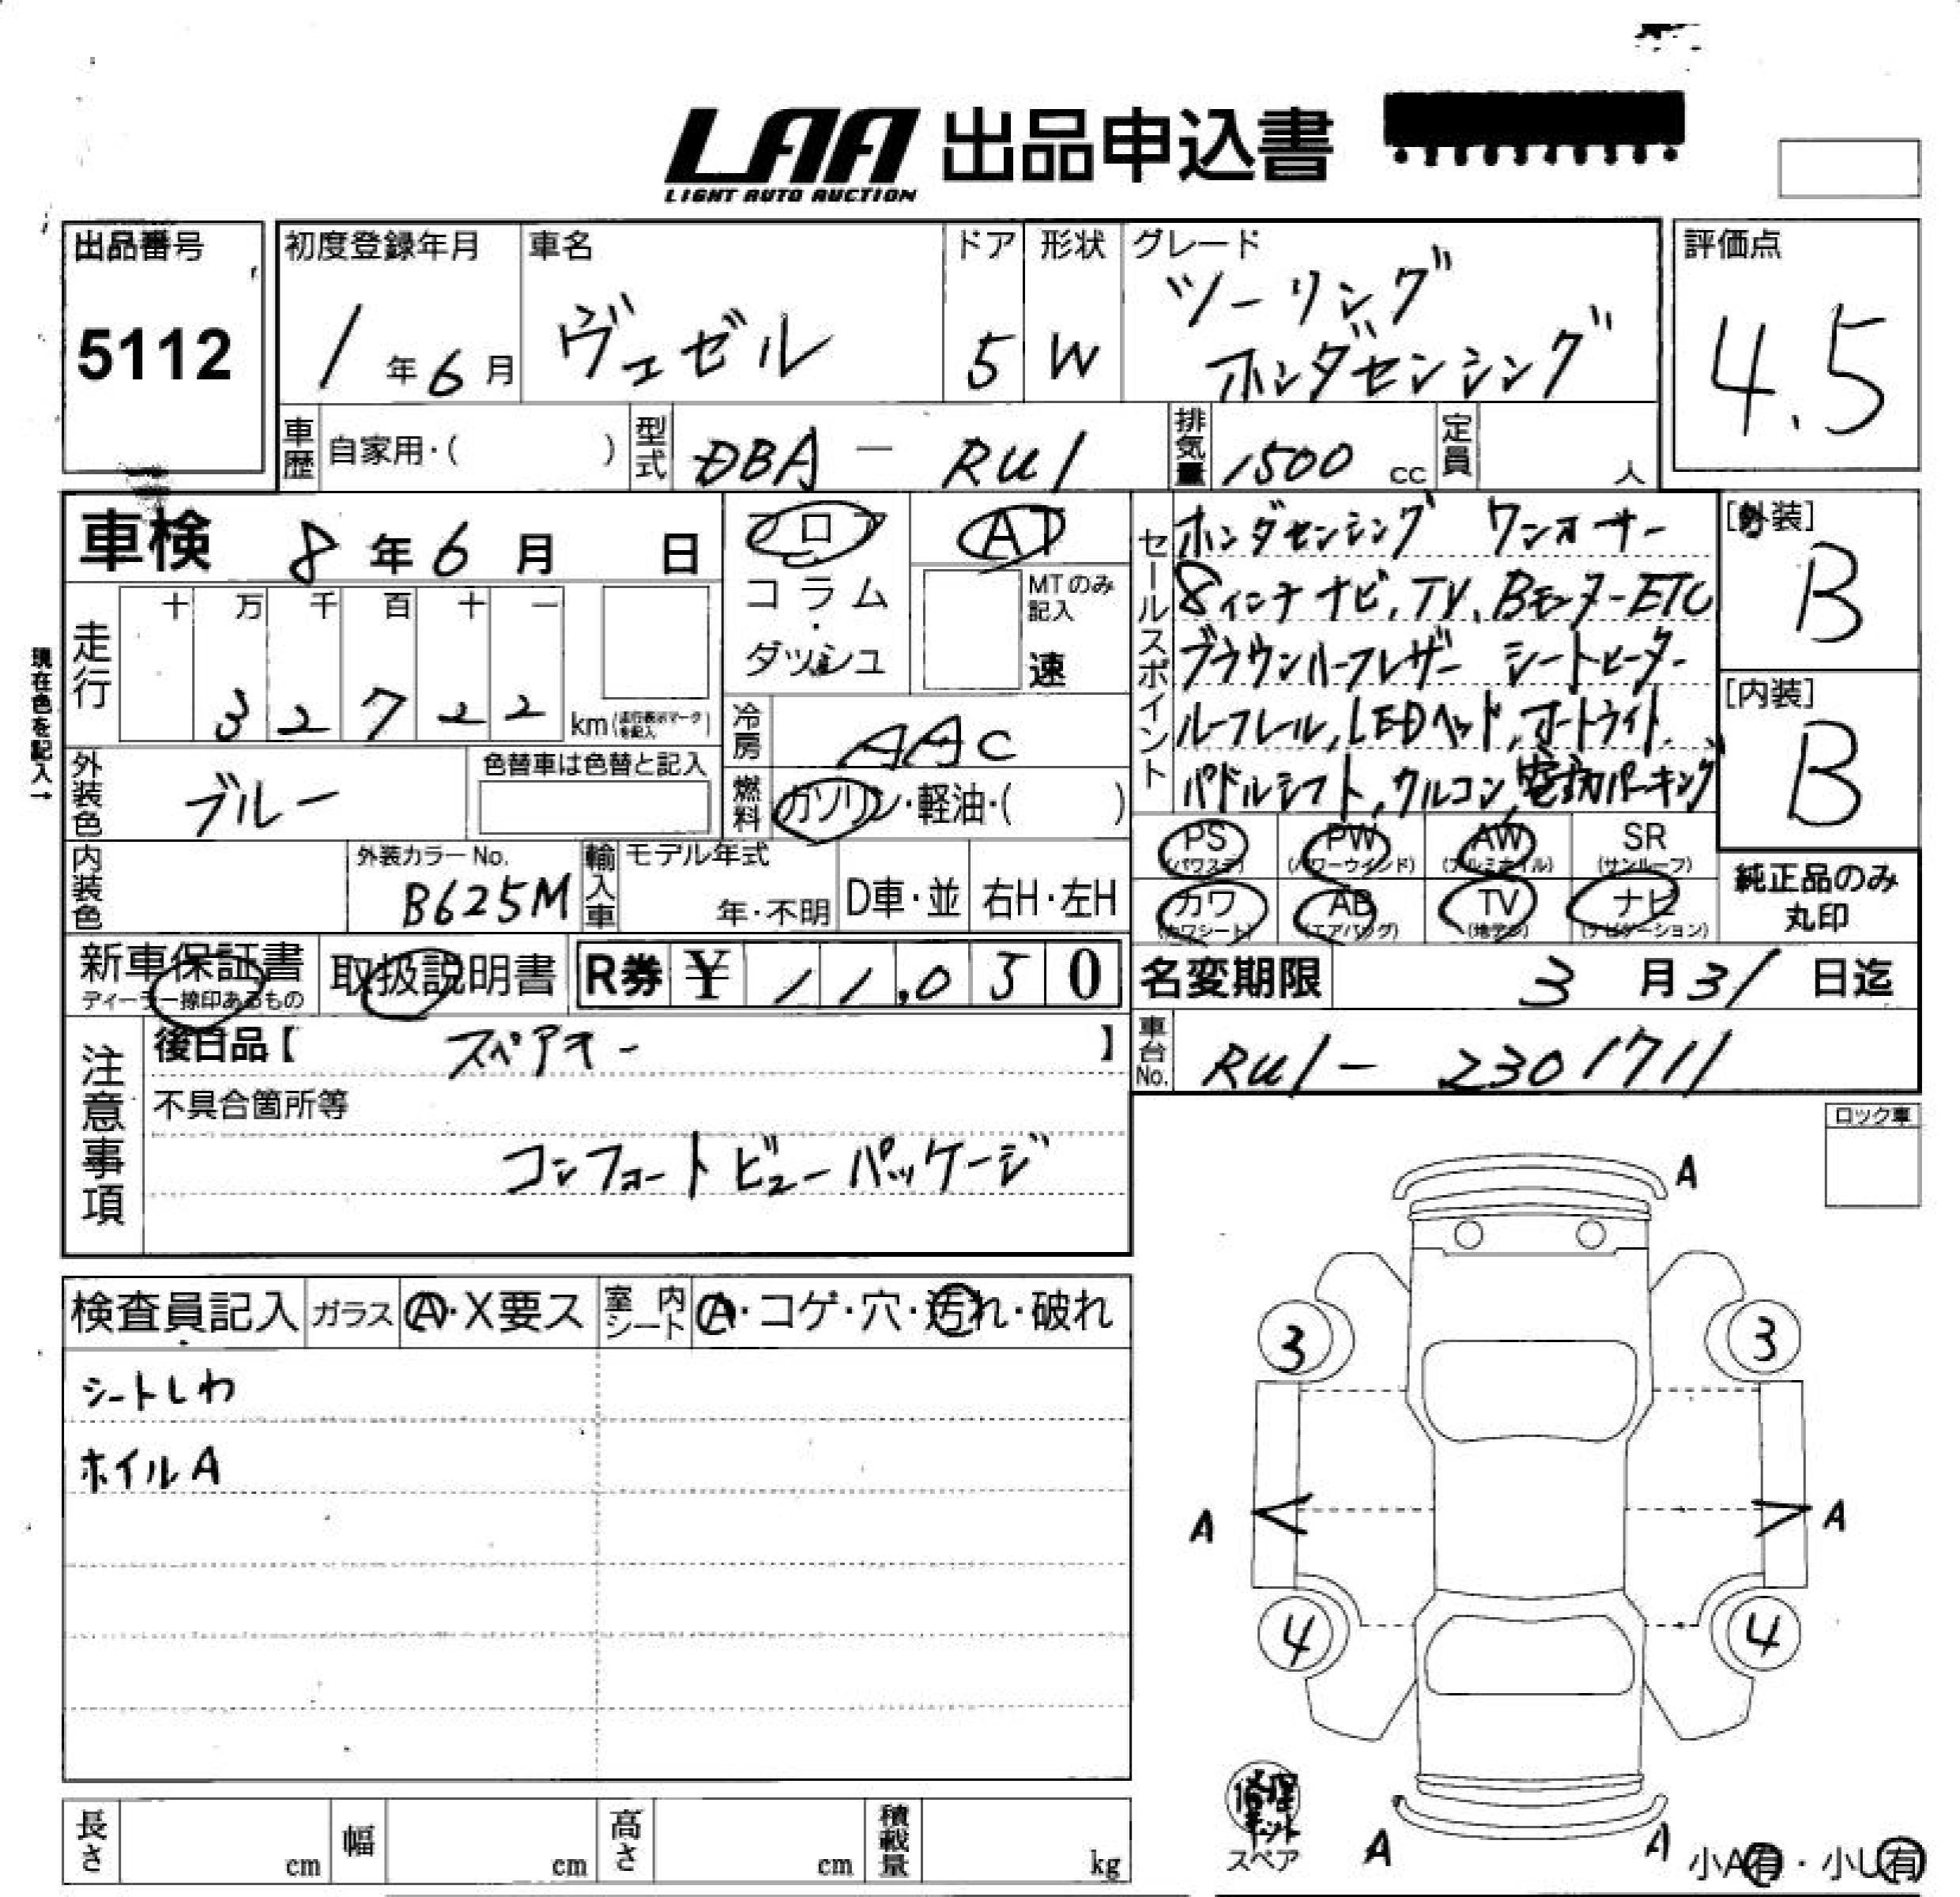 LAA 出品申込書
LIGHT AUTO AUCTION
出品番号
5112
初度登録年月
1年6月
車名
ヴェゼル
ドア
5
形状
W
グレード
ツーリング
ホンダセンシング
評価点
4.5
車歴 自家用・( )
型式 DBA - RU1
排気量 1500 cc
定員 人
車検 8年6月 日
フロア
コラム
・
ダッシュ
AT
MTのみ
記入
速
セールスポイント
ホンダセンシング ワンオーナー
8インチナビ、TV、Bモニター ETC
ブラウンハーフレザー シートヒーター
ルーフレール、LEDヘッド、オートライト、
パドルシフト、クルコン、電動パーキング
[外装]
B
[内装]
B
現在色を記入→
走行
十 万 千 百 十 一
3 2 7 2 2 km (走行表示マークを記入)
冷房 AAC
燃料 ガソリン・軽油・( )
外装色 ブルー
色替車は色替と記入
内装色
外装カラーNo.
B625M
輸入車
モデル年式
年・不明
D車・並
右H・左H
PS (パワステ)
PW (パワーウインド)
AW (アルミホイル)
SR (サンルーフ)
カワ (カワシート)
AB (エアバッグ)
TV (地デジ)
ナビ (ナビゲーション)
純正品のみ
丸印
新車保証書
ディーラー捺印あるもの
取扱説明書
R券 ¥ 11,050
名変期限 3月31日迄
注意事項
後日品【 スペアキー 】
車台No. RU1-2301711
不具合箇所等
コンフォートビューパッケージ
ロック車
検査員記入
ガラス A・X要ス
室内シート A・コゲ・穴・汚れ・破れ
シートしわ
ホイルA
A
3
3
A
A
4
4
修理キット
スペア
A
A
小A有・小U有
長さ cm
幅 cm
高さ cm
積載量 kg